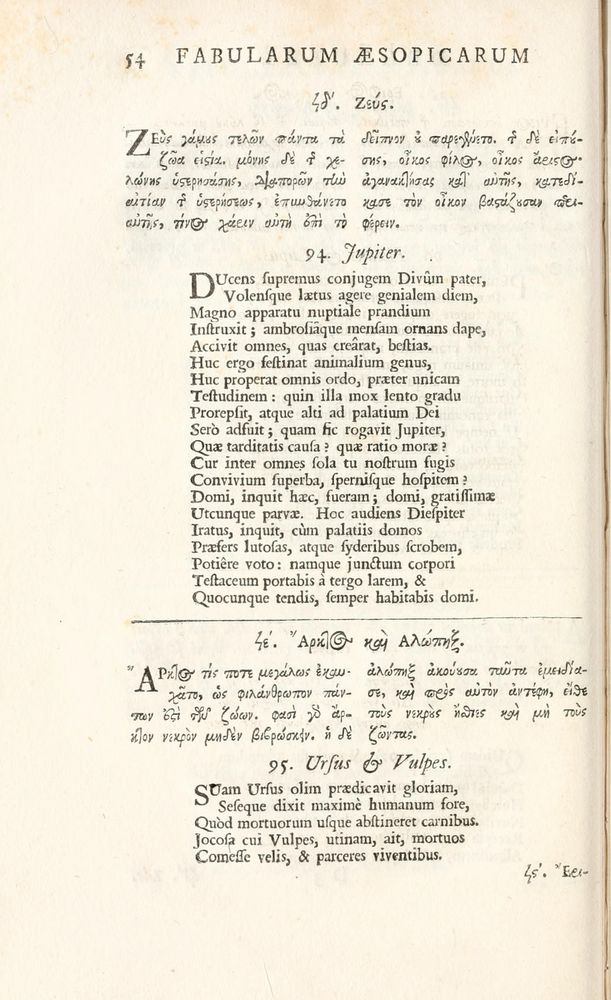 54 FABULARUM ÆSOPICARUM
ϟδʹ. Ζεύς.
ΖΕὺς γάμους τελῶν πάντα τὰ
ζῶα εἱστία. μόνης δὲ τ χε-
λώνης ὑστερησάσης, διαπορῶν τὴν
αἰτίαν τ ὑστερήσεως, ἐπυνθάνετο
αὐτῆς, τίνος χάριν αὐτὴ ἐπὶ τὸ
δεῖπνον ȣ παρεγένετο. τ δὲ εἰπȣ́-
σης, οἶκος φίλος, οἶκος ἄριστος.
ἀγανακτήσας κατ' αὐτῆς, κατεδί-
κασε τὸν οἶκον βαστάζουσαν περι-
φέρειν.
94. Jupiter.
DUcens supremus conjugem Divûm pater,
Volensque lætus agere genialem diem,
Magno apparatu nuptiale prandium
Instruxit; ambrosiâque mensam ornans dape,
Accivit omnes, quas creârat, bestias.
Huc ergo festinat animalium genus,
Huc properat omnis ordo, præter unicam
Testudinem: quin illa mox lento gradu
Prorepsit, atque alti ad palatium Dei
Serò adfuit; quam sic rogavit Jupiter,
Quæ tarditatis causa? quæ ratio moræ?
Cur inter omnes sola tu nostrum fugis
Convivium superba, spernisque hospitem?
Domi, inquit hæc, fueram; domi, gratissimæ
Utcunque parvæ. Hoc audiens Diespiter
Iratus, inquit, cùm palatiis domos
Præfers lutosas, atque syderibus scrobem,
Potiêre voto: namque junctum corpori
Testaceum portabis à tergo larem, &
Quocunque tendis, semper habitabis domi.
ϟεʹ. Ἄρκτος καὶ Ἀλώπηξ.
ἌΡκτος τίς ποτε μεγάλως ἐκαυ-
χᾶτο, ὡς φιλάνθρωπον πάν-
των ἐστὶ τῶν ζώων. φασὶ γὸ ἄρ-
κτον νεκρὸν μηδὲν βιβρώσκειν. ἡ δὲ
ἀλώπηξ ἀκούσασα ταῦτα ἐμειδία-
σε, καὶ πρὸς αὐτὸν ἀντέφη, εἴθε
τοὺς νεκρȣ̀ς ἤσθιες καὶ μὴ τοὺς
ζῶντας.
95. Ursus & Vulpes.
SUam Ursus olim prædicavit gloriam,
Seseque dixit maximè humanum fore,
Quòd mortuorum usque abstineret carnibus.
Jocosa cui Vulpes, utinam, ait, mortuos
Comesse velis, & parceres viventibus.
ϟςʹ. Ἔρι-